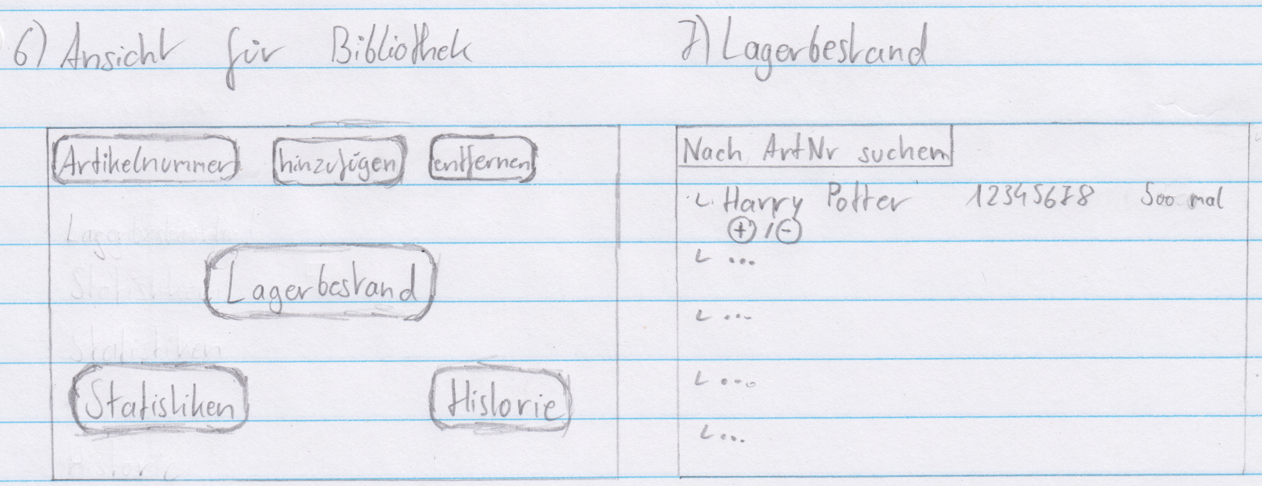 6) Ansicht für Bibliothek
Artikelnummer hinzufügen entfernen
Lagerbestand
Statistiken Historie
7) Lagerbestand
Nach ArtNr suchen
Harry Potter 12345678 500 mal
+ / -
...
...
...
...